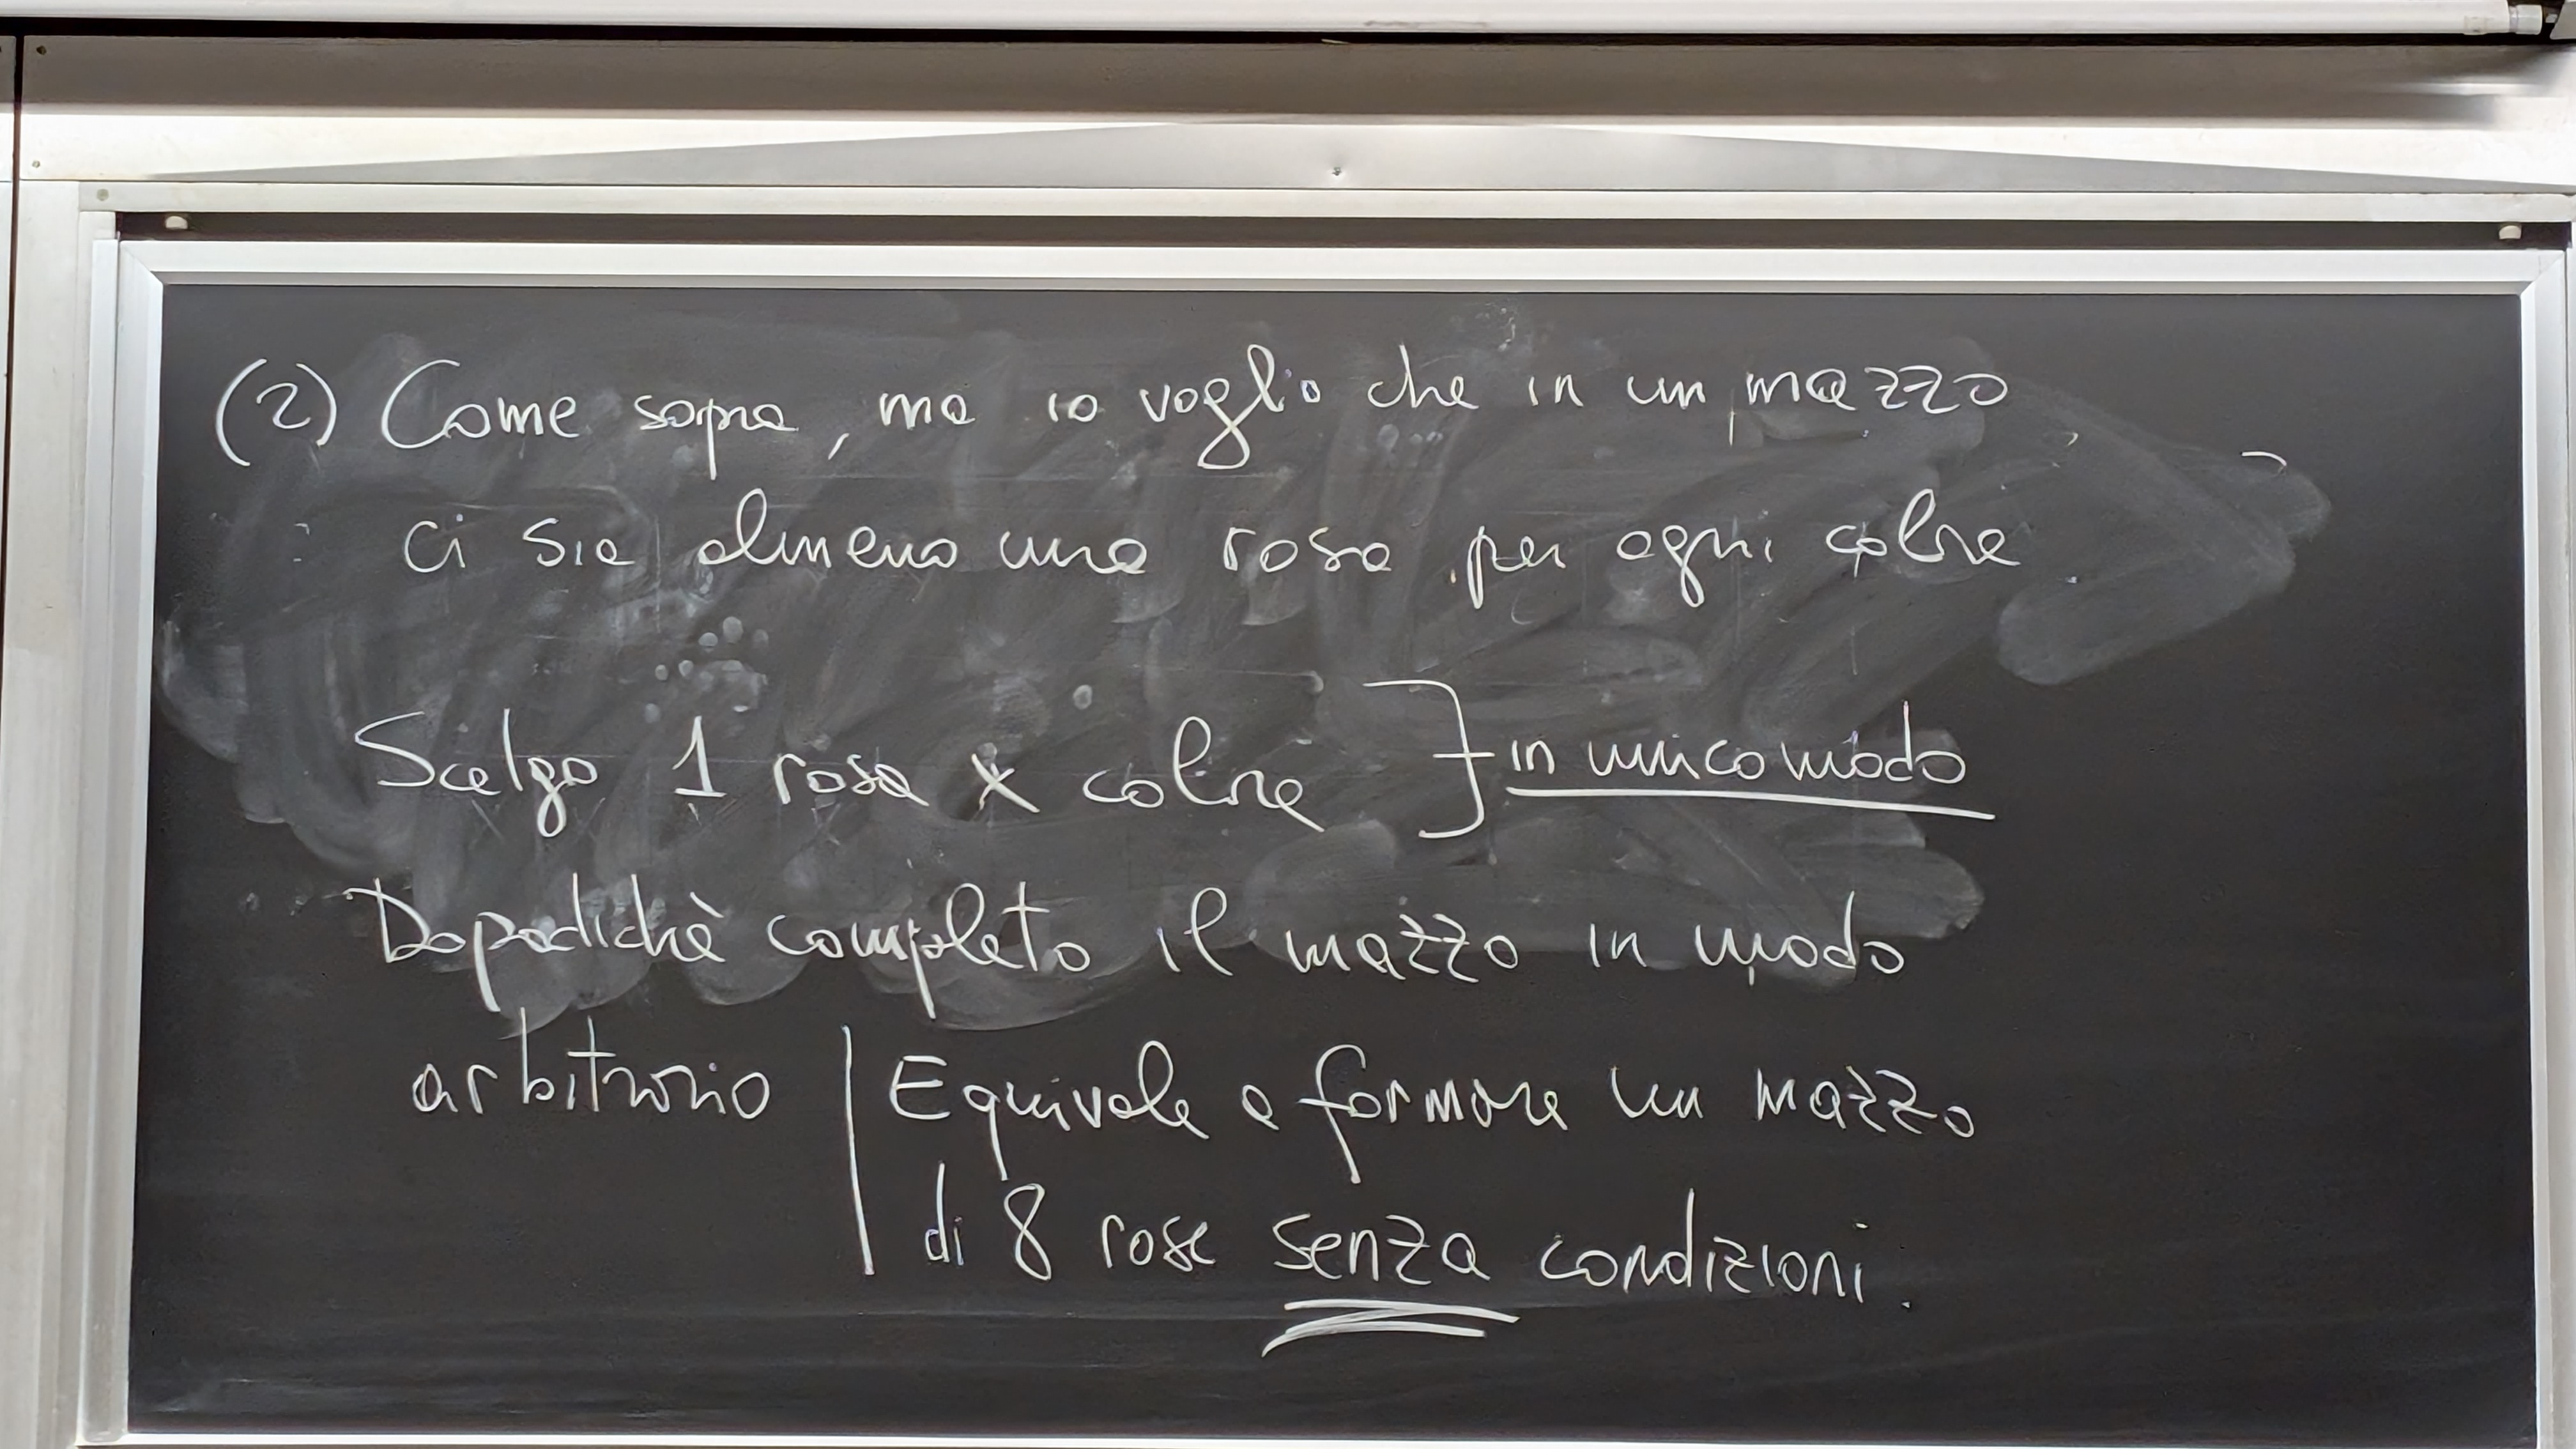 (2) Come sopra, ma io voglio che in un mazzo
ci sia almeno una rosa per ogni colore
Scelgo 1 rosa x colore } in unico modo
Dopodichè completo il mazzo in modo
arbitrario | Equivale a formare un mazzo
di 8 rose senza condizioni.